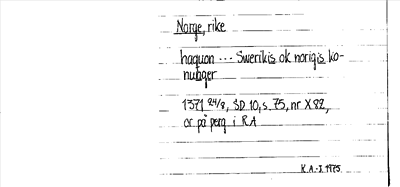 Norge, rike
haquon --- Swerikis ok norigis ko-
nunger
1371 24/8, SD 10, s. 75, nr X 82,
or på perg i RA
K.A.-J. 1975